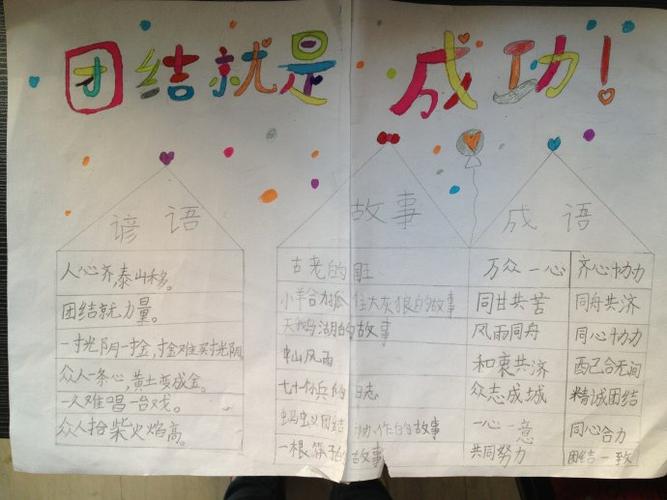 团结就是成功！
谚语
人心齐，泰山移。
团结就力量。
一寸光阴一寸金，寸金难买寸光阴。
众人一条心，黄土变成金。
一人难唱一台戏。
众人拾柴火焰高。
故事
古老的
小羊合力抓住大灰狼的故事
天鹅湖的故事
风雨
七个
蚂蚁团结协作的故事
一根筷子的故事
成语
万众一心 齐心协力
同甘共苦 同舟共济
风雨同舟 同心协力
和衷共济 配合无间
众志成城 精诚团结
一心一意 同心合力
共同努力 团结一致